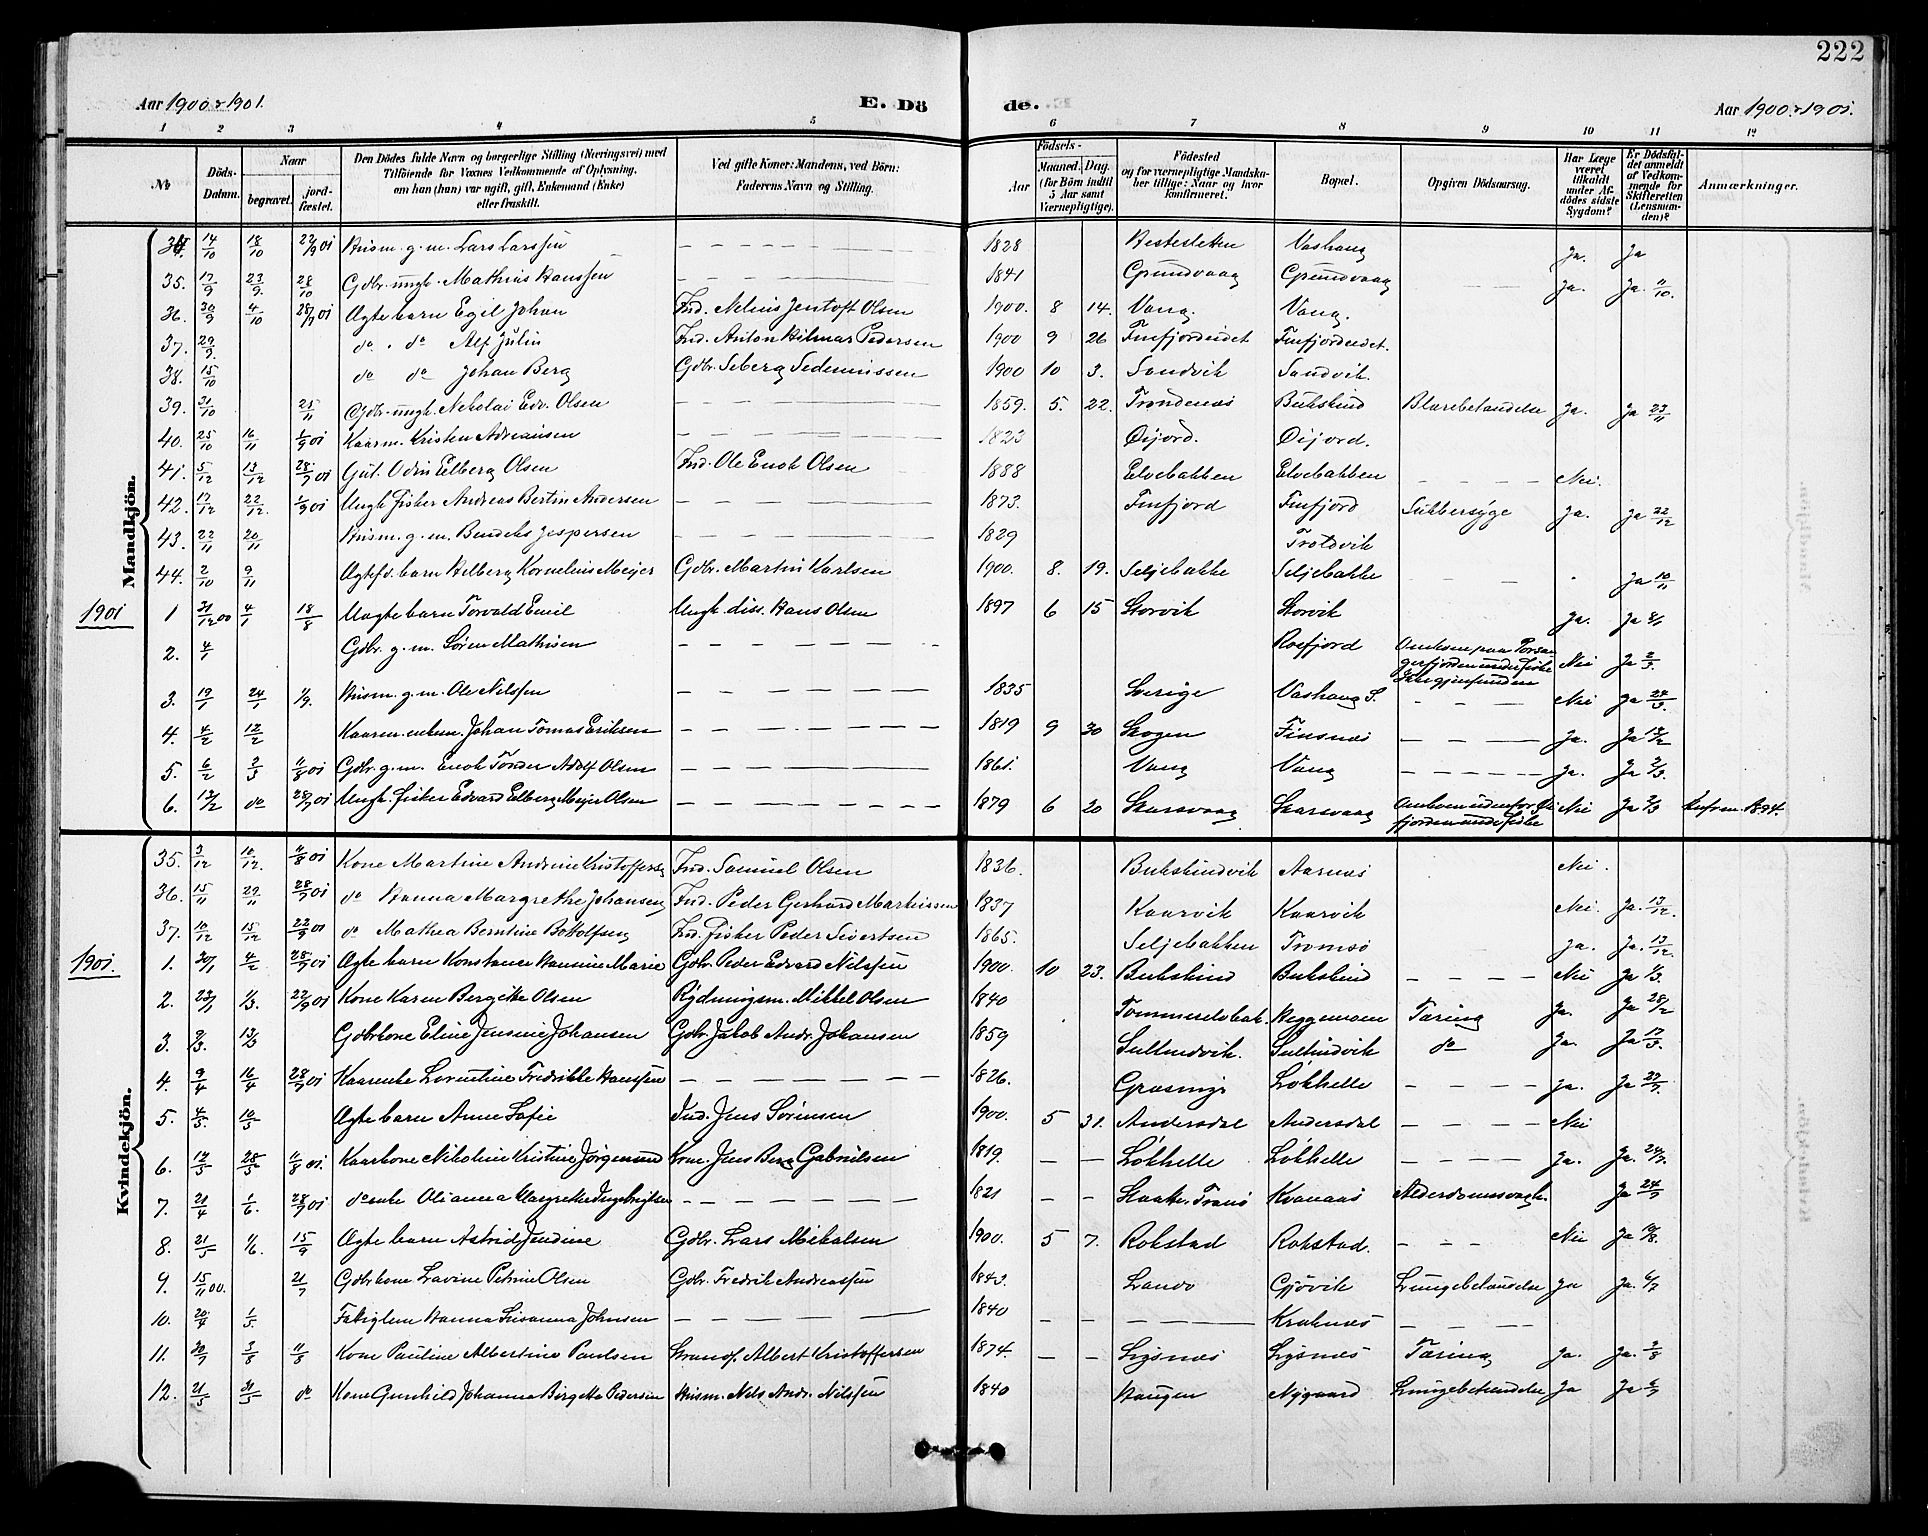 222
Aar 1900 & 1901. E. Dö de. Aar 1900 & 1901.
1 2 3 4 5 6 7 8 9 10 11 12
№ Döds-Datum. Naar begravet. jordfæstet. Den Dödes fulde Navn og borgerlige Stilling (Næringsvei) med Tilföiende for Voxnes Vedkommende af Oplysning, om han (hun) var ugift, gift, Enkemand (Enke) eller fraskilt. Ved gifte Koner: Mandens, ved Börn: Faderens Navn og Stilling. Födsels- Aar Maaned. Dag. (for Börn indtil 5 Aar samt Værnepligtige). Födested og for værnepligtige Mandskaber tillige: Naar og hvor konfirmeret. Bopæl. Opgiven Dödsaarsag. Har Læge været tilkaldt under Afdödes sidste Sygdom? Er Dödsfaldet anmeldt af Vedkommende for Skifteretten (Lensmanden)? Anmærkninger.
Mandkjön.
34. 14/10 18/10 22/9 01 Husm. g. m. Lars Larssen 1828 Hestesletten Vashaug Ja. Ja
35. 17/9 23/9. 28/10 Gdbr. ungk. Mathias Hanssen 1841 Grundvaag Grundvaag Ja. Ja. 11/10.
36. 30/9 4/10 28/7 01 Ægte barn Egil Johan Ind. Nelius Jentoft Olsen 1900. 8 14. Vang. Vang.
37. 29/9. do do Alf Julin Ind. Anton Hilmar Pedersen 1900 9 26 Finfjordeidet Finfjordeidet.
38. 15/10 do do Johan Berg Gdbr. Seberg Sedeniussen 1900 10 3. Sandvik Sandvik.
39. 31/10 25/11 Gdbr. ungk. Nikolai Edv. Olsen 1859. 5. 22. Trondenæs Bukskind Blærebetændelse Ja. Ja 23/11
40. 25/10 16/11 1/9 01 Kaarm. Kristen Adreansen 1823 Öijord. Öijord.
41. 5/12 13/12 28/7 01 Gut. Odin Elberg Olsen Ind. Ole Enok Olsen 1888 Elvebakken Elvebakken Nei.
42. 17/12 22/12. 1/9 01 Ungk. fisker Andreas Bertin Andersen 1873. Finfjord Finfjord Sukkersyge Ja. Ja 22/12
43. 22/11 20/11 Husm. g. m. Bendeks Jespersen 1829 Troldvik
44. 2/10 9/11 Ægtefd. barn Helberg Kornelius Meyer Gdbr. Martin Karlsen 1900. 8. 19. Seljebakke Seljebakke Ja 10/11
1901 1 31/12 00 4/1 18/8 Uægte barn Torvald Emil Ungk. diss. Hans Olsen 1897 6 15 Storvik Storvik Ja. Ja 8/1
2. 4/1 Gdbr. g. m. Sören Mathisen Rosfjord Omkom paa Porsangerfjorden under fiske Ikke gjenfunden Nei Ja 2/3.
3. 19/1 24/1 1/9. Husm. g. m. Ole Nilssen 1835 Sverige Vashaug S. Nei Ja 24/3.
4. 4/2 12/2 Kaarm. enkem. Johan Tomas Eriksen 1819 9 30 Skogen Finsnæs Ja. Ja 12/2
5. 6/2 2/3 11/8 01 Gdbr. g. m. Enok Tönder Adolf Olsen 1861. Vang Vang Ja. Ja 2/3.
6. 12/2 do 28/7 01 Ungk. fisker Edvard Elberg Meyer Olsen 1879 6 20 Skarsvaag Skarsvaag Omkom udenfor fjorden under fiske Nei Ja 2/3 Konfirm. 1894.
Kvindekjön.
35. 3/12 10/12. 11/8 01 Kone Martine Andrine Kristoffersen Ind. Samuel Olsen 1836. Bukskindvik Aarnæs Nei.
36. 15/11 29/11 28/7 01 do Hanna Margrethe Johansen Ind. Peder Gerhard Martinissen 1837 Kaarvik Kaarvik Nei. Ja. 13/12.
37. 10/12 15/12 22/9 01 do Mathea Berntine Botolfsen Ind. Fisker Peder Sivertsen 1865. Seljebakken Tromsö Ja. Ja. 13/12
1901. 1. 20/1 4/2 28/7 01 Ægte barn Konstance Hansine Marie Gdbr. Peder Edvard Nilssen 1900. 10 23. Bukskind Bukskind Nei Ja 1/3.
2. 23/1 1/3. 22/9 01 Kone Karen Bergitte Olsen Rydningsm. Mikkel Olsen 1840 Tommerelvbak. Heggemoen Tæring Ja. Ja 28/2
3. 9/3. 13/3 Gdbrkone Eline Jensine Johansen Gdbr. Jakob Andr. Johansen 1859 Sultindvik. Sultindvik do Ja. Ja 17/3.
4. 9/4 16/4 28/7 01 Kaarenke Lorentine Fredrikke Hanssen 1826. Grasmyr Lökhelle Ja. Ja 27/7
5. 4/5. 10/5 Ægte barn Anne Sofie Ind. Jens Sörensen 1900. 5 31. Andersdal Andersdal Nei
6. 17/5 28/5 11/8 01. Kaarkone Nikoline Kristine Jörgensen Kone. Jens Berg Gabrielsen 1819. Lökhelle Lökhelle Ja. Ja. 24/7.
7. 21/4 1/6. 28/7 01 do enke Olianna Margrethe Ingebrigtsen 1821 Skatn. Tranö Kvanaas Alderdomssvaghe. Ja 24/7
8. 21/5 1/6. 15/9 Ægte barn Astrid Jendine Gdbr. Lars Mikalsen 1900. 5 7. Rokstad Rokstad. Nei Ja 10/8.
9. 15/11 00. 21/7 Gdbrkone Lavine Petrine Olsen Gdbr. Fredrik Andreassen 1843. Landö Gjövik Lungebetændelse Ja Ja. 6/7
10. 20/4 1/5. Fatiglem Hanna Susanna Johnsen 1840 Kraknæs
11. 30/7 3/8 11/8 Kone Pauline Albertine Paulsen Strands. Albert Kristoffersen 1874. Lysnæs Lysnæs Tæring Ja. Ja. 2/8
12. 21/5 31/5 do Kone Gunhild Johanna Birgitte Pedersen Husm. Nils Andr. Nilssen 1840 Haugen Nygaard Lungebetændelse Ja Ja 6/7